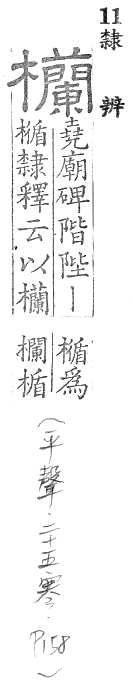 11 隸辨
欄
堯廟碑階陛丨
楯隸釋云以欄
楯爲
欄楯
(平聲·二十五寒·P158)